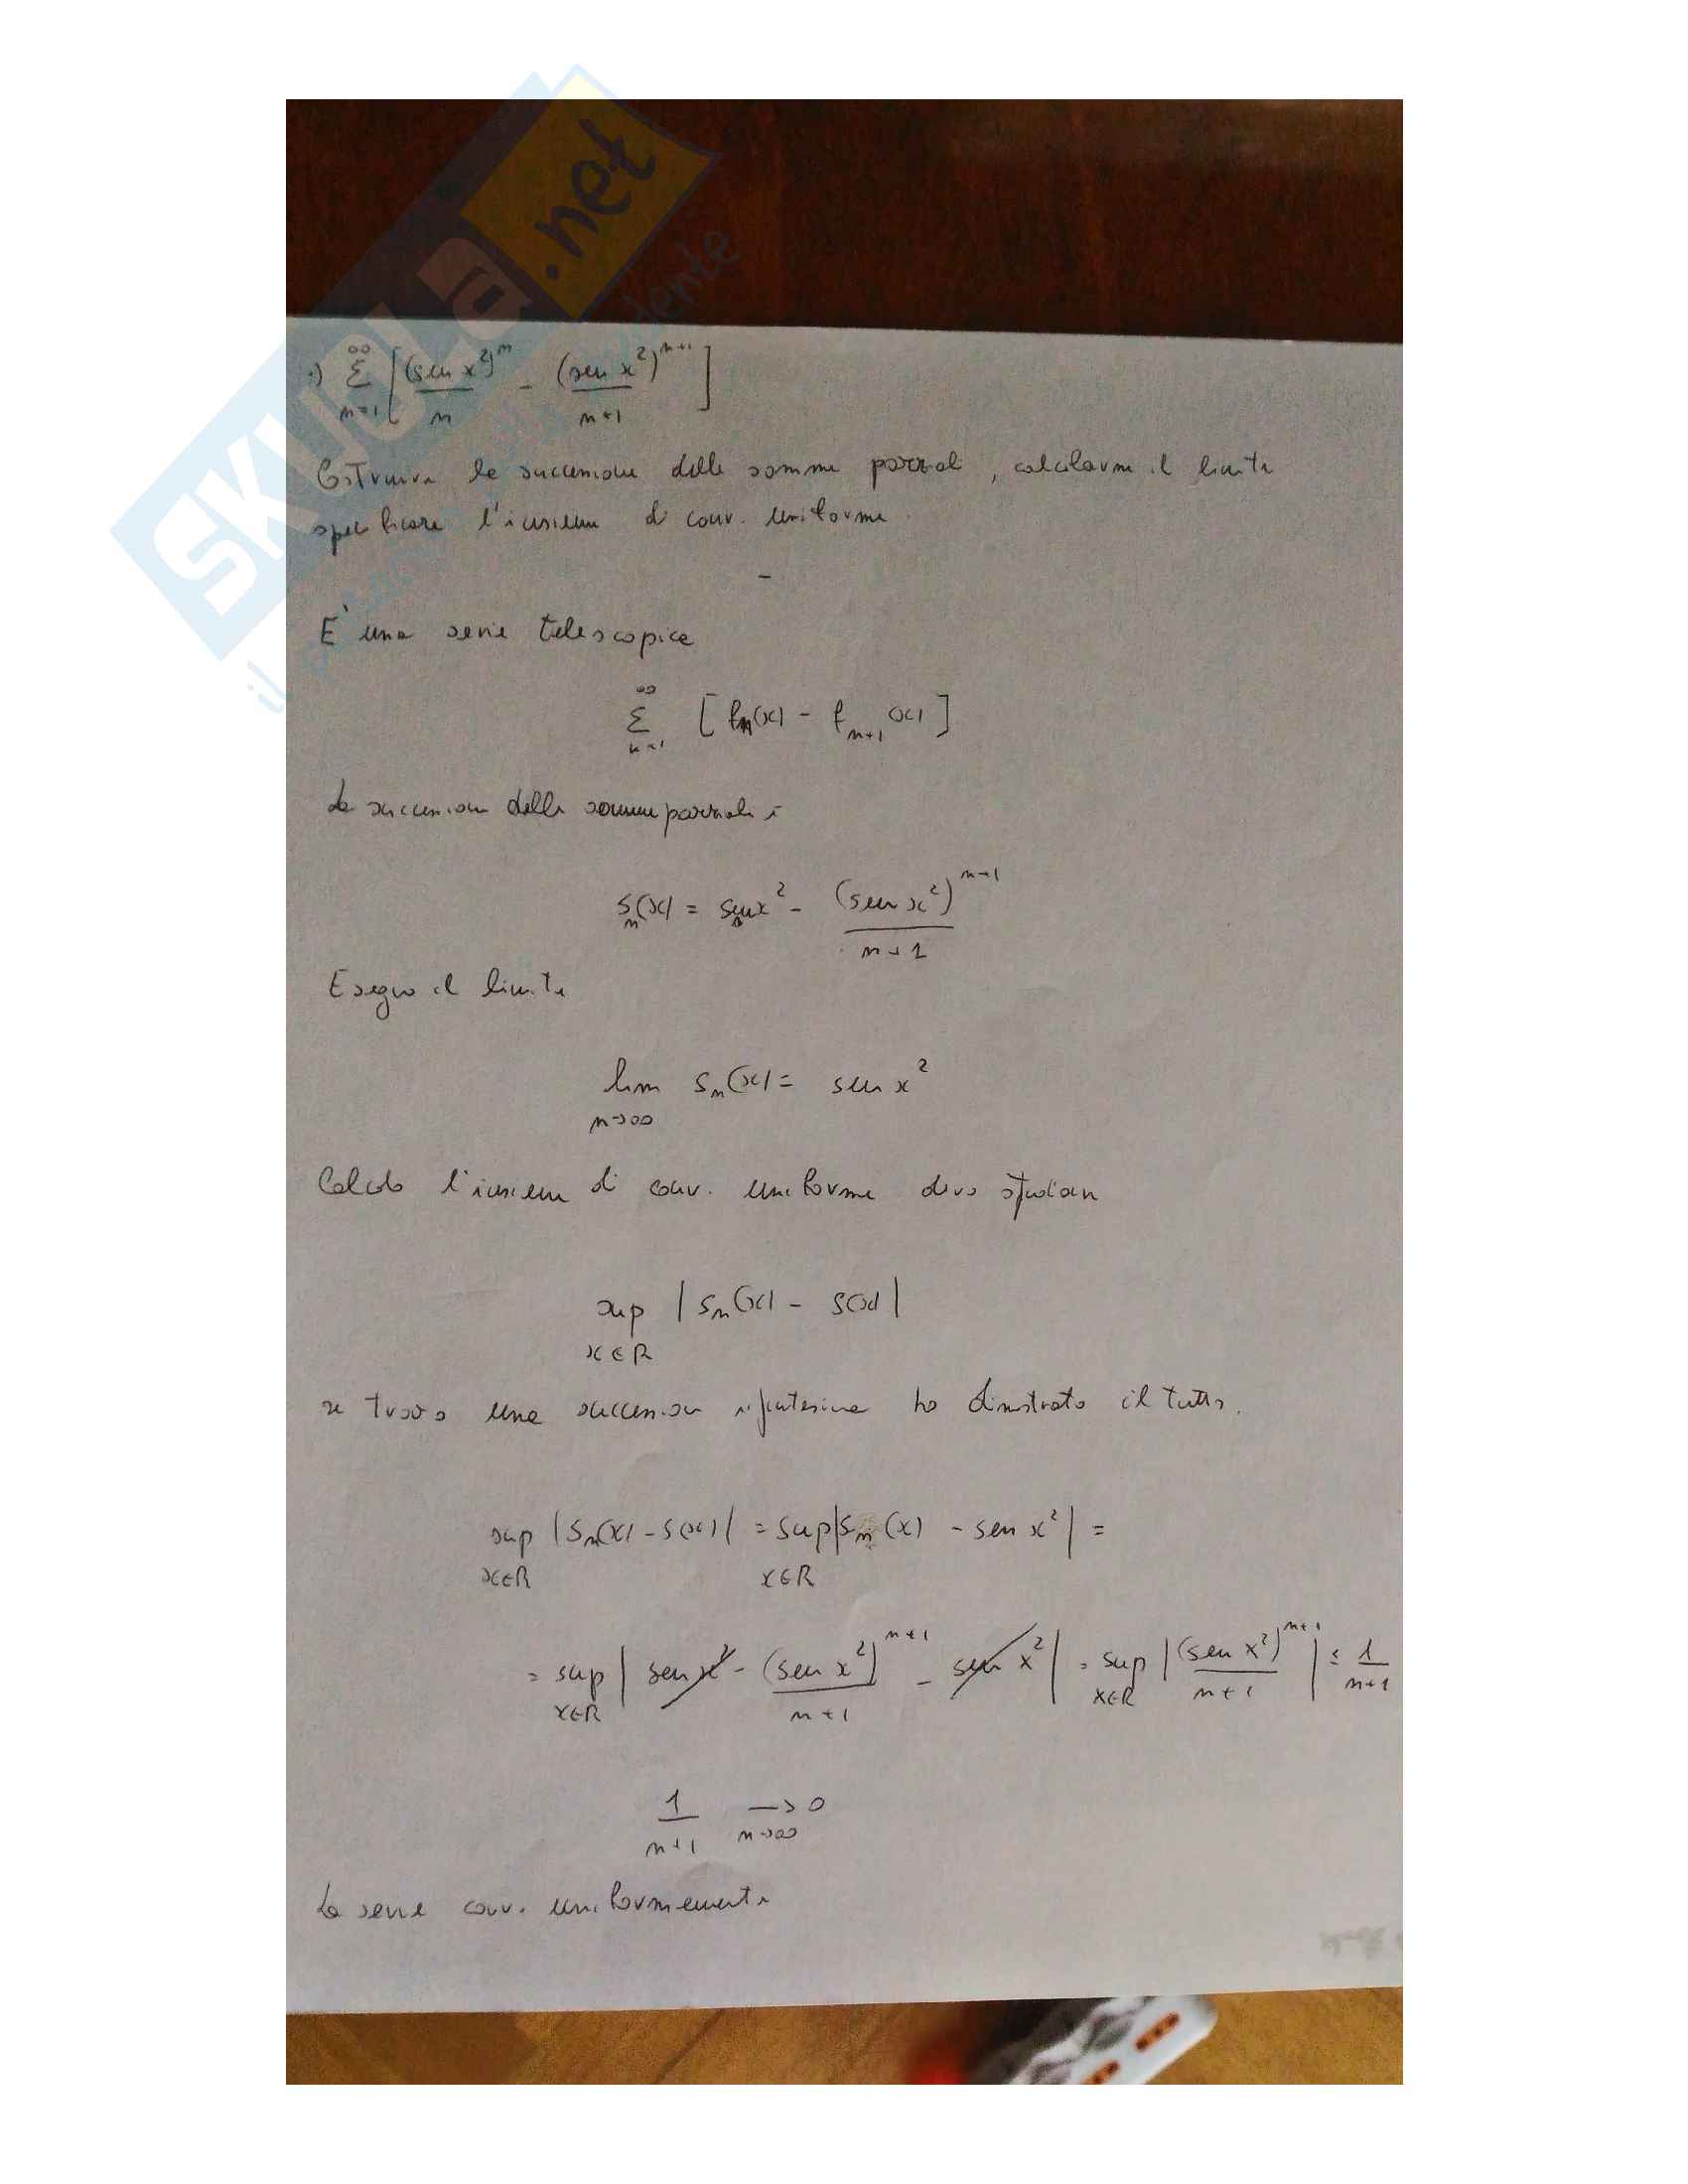 SKUOLa.net
·) ∑_{n=1}^{∞} [ (sen x²)^n / n - (sen x²)^{n+1} / (n+1) ]
Costruire la successione delle somme parziali, calcolarne il limite
specificare l'insieme di conv. uniforme.
-
E' una serie telescopica
∑_{n=1}^{∞} [ f_n(x) - f_{n+1}(x) ]
La successione delle somme parziali è
s_n(x) = sen x² - (sen x²)^{n+1} / (n+1)
Eseguo il limite
lim_{n→∞} s_n(x) = sen x²
Calcolo l'insieme di conv. uniforme devo studiare
sup_{x∈R} | s_n(x) - s(x) |
se trovo una successione infinitesima ho dimostrato il tutto.
sup_{x∈R} | s_n(x) - s(x) | = sup_{x∈R} | s_n(x) - sen x² | =
= sup_{x∈R} | sen x² - (sen x²)^{n+1} / (n+1) - sen x² | = sup_{x∈R} | (sen x²)^{n+1} / (n+1) | ≤ 1 / (n+1)
1 / (n+1) →_{n→∞} 0
La serie conv. uniformemente